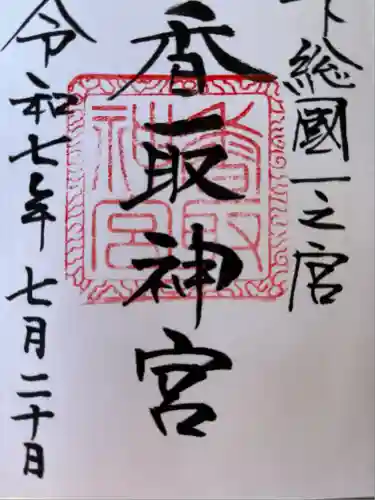 下総國一之宮
香取神宮
令和七年七月二十日
香取神宮